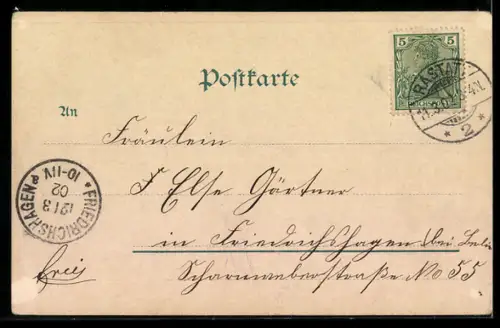 5 5
Postkarte
RASTATT
11.3.0
* 2 *
An
Fräulein
Else Gärtner
in Friedrichshagen bei Berlin
Scharnweberstraße No 55
* FRIEDRICHSHAGEN *
12/3
02
10-11V.
frei